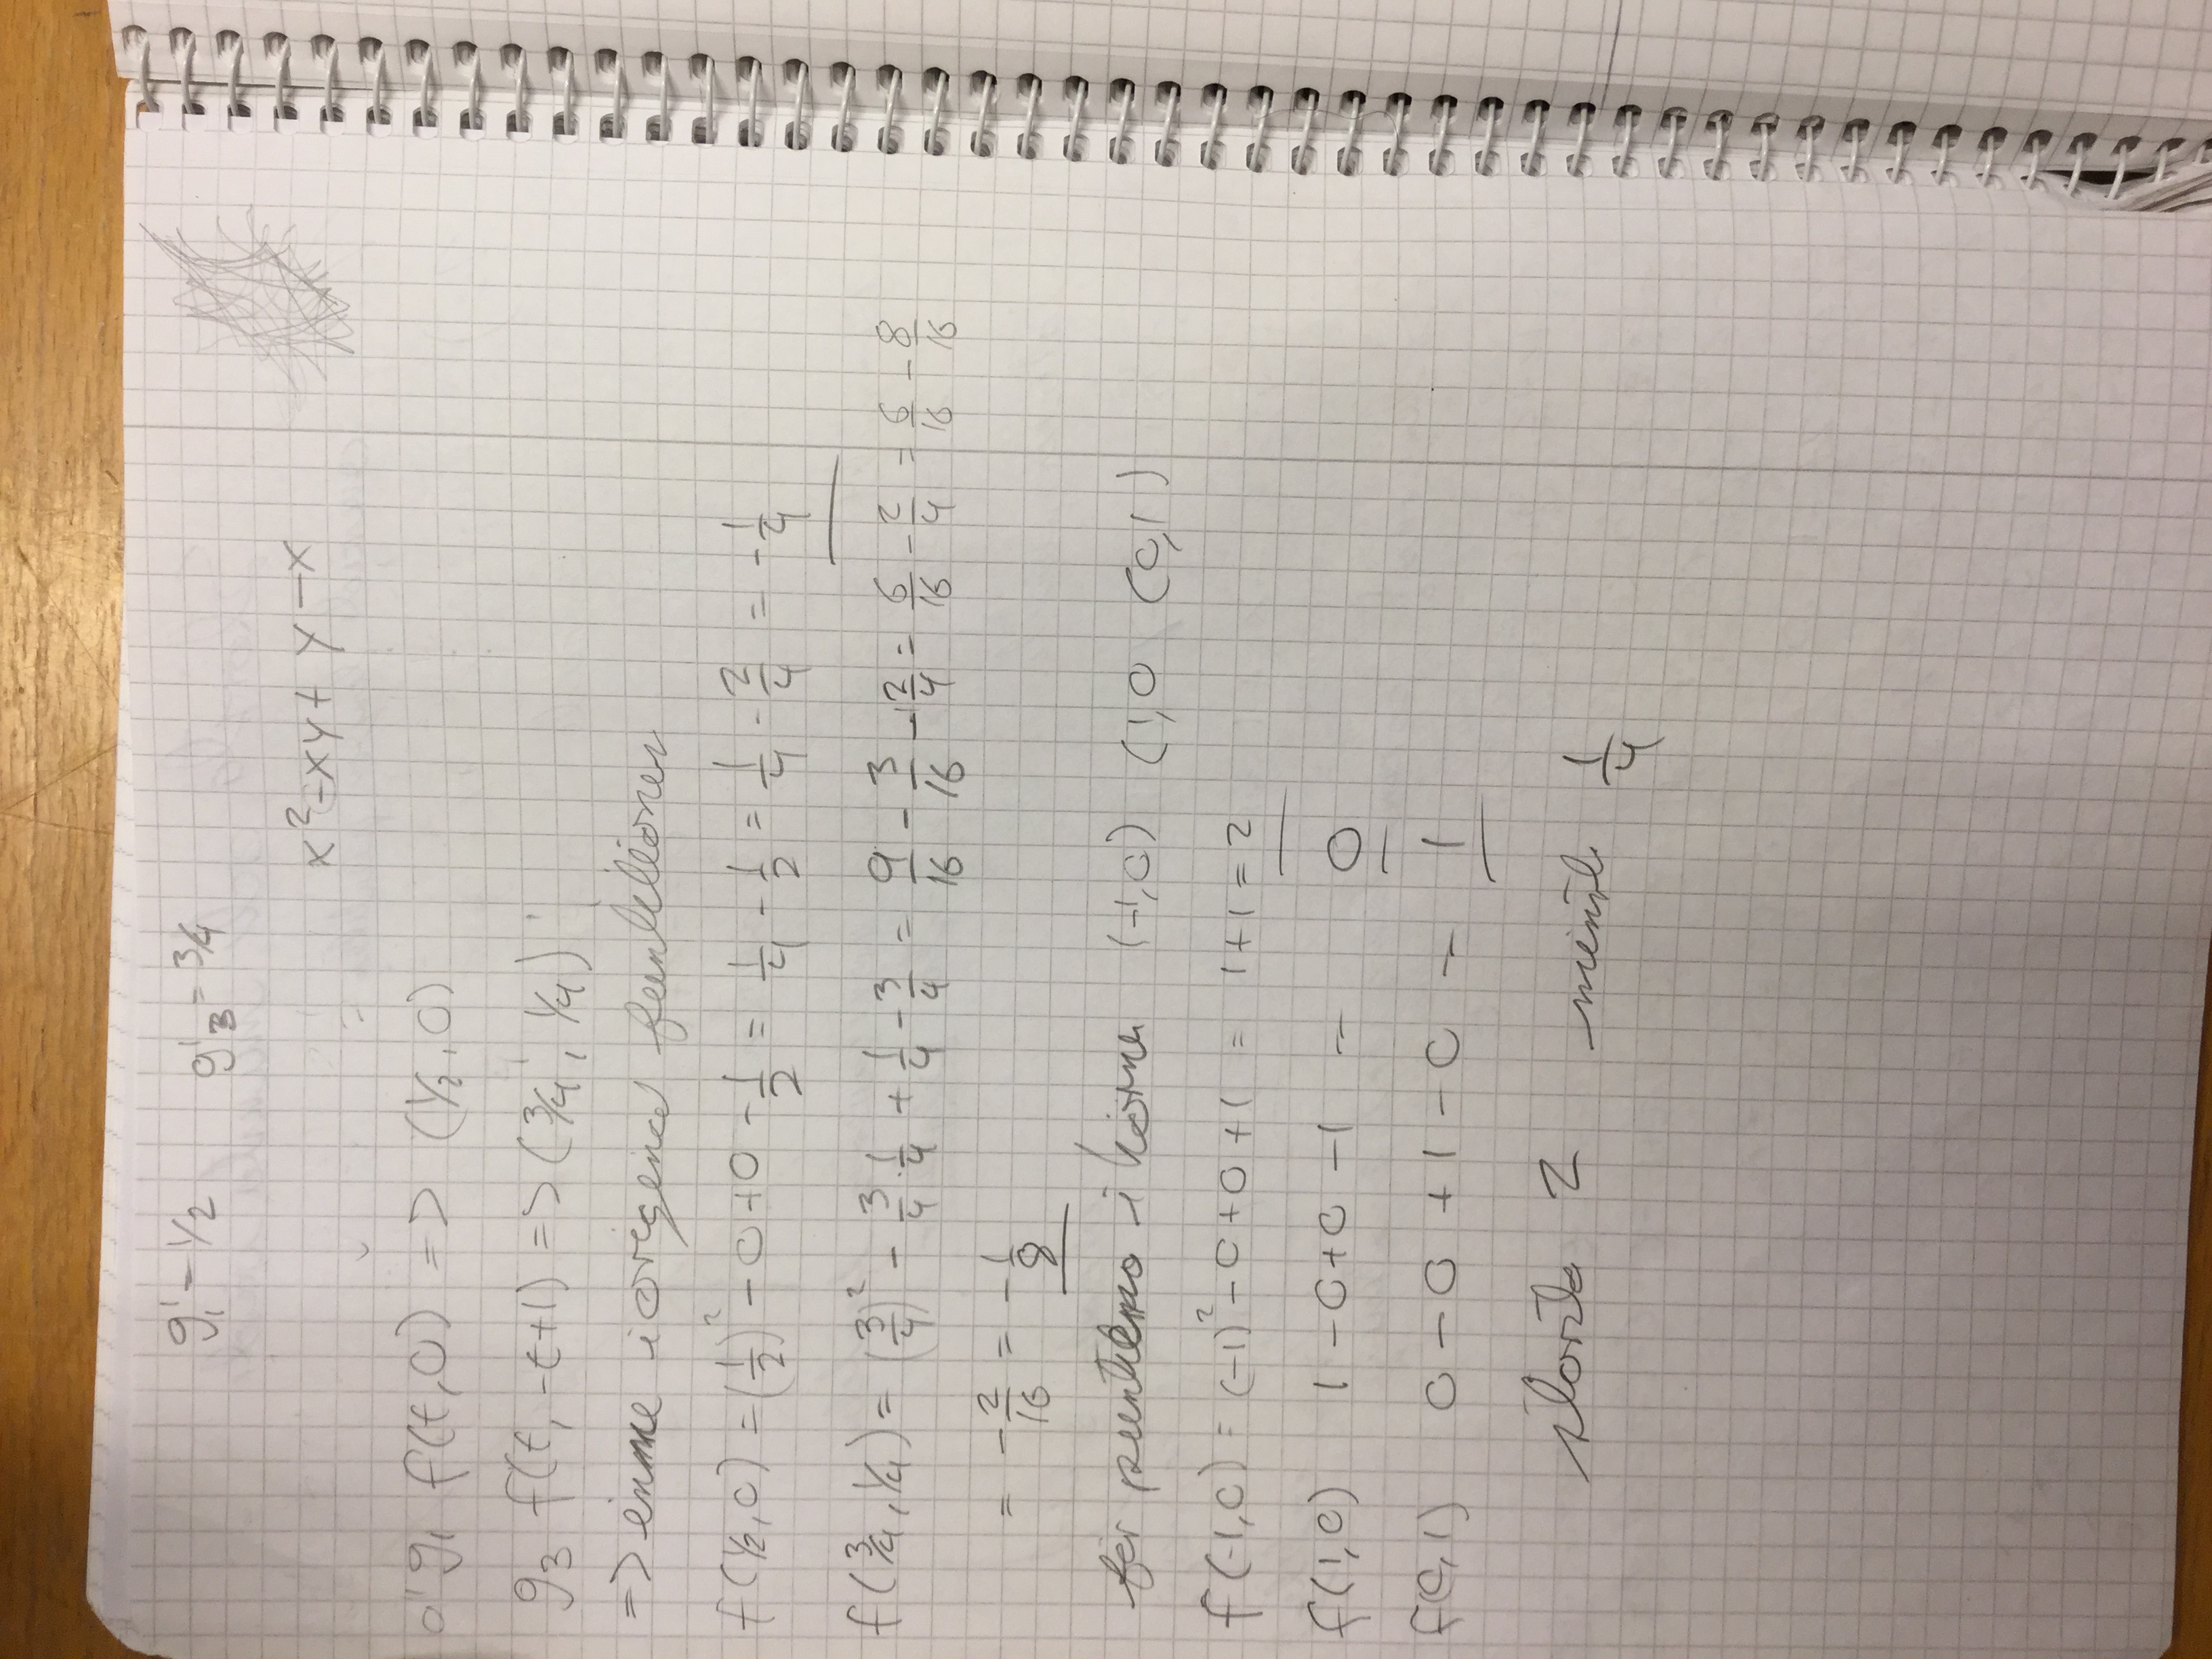 g'₁ = 1/2 g'₃ = 3/4
x² - xy + y - x
g₁ f(t, 0) => (1/2, 0)
g₃ f(t, -t+1) => (3/4, 1/4)
=> i funktionen
f(1/2, 0) = (1/2)² - 0 + 0 - 1/2 = 1/4 - 1/2 = 1/4 - 2/4 = -1/4
f(3/4, 1/4) = (3/4)² - 3/4 · 1/4 + 1/4 - 3/4 = 9/16 - 3/16 - 2/4 = 6/16 - 2/4 = 6/16 - 8/16
= -2/16 = -1/8
för i hörnen (-1, 0) (1, 0 (0, 1)
f(-1, 0) = (-1)² - 0 + 0 + 1 = 1 + 1 = 2
f(1, 0) 1 - 0 + 0 - 1 = 0
f(0, 1) 0 - 0 + 1 - 0 = 1
största 2 minsta 1/4